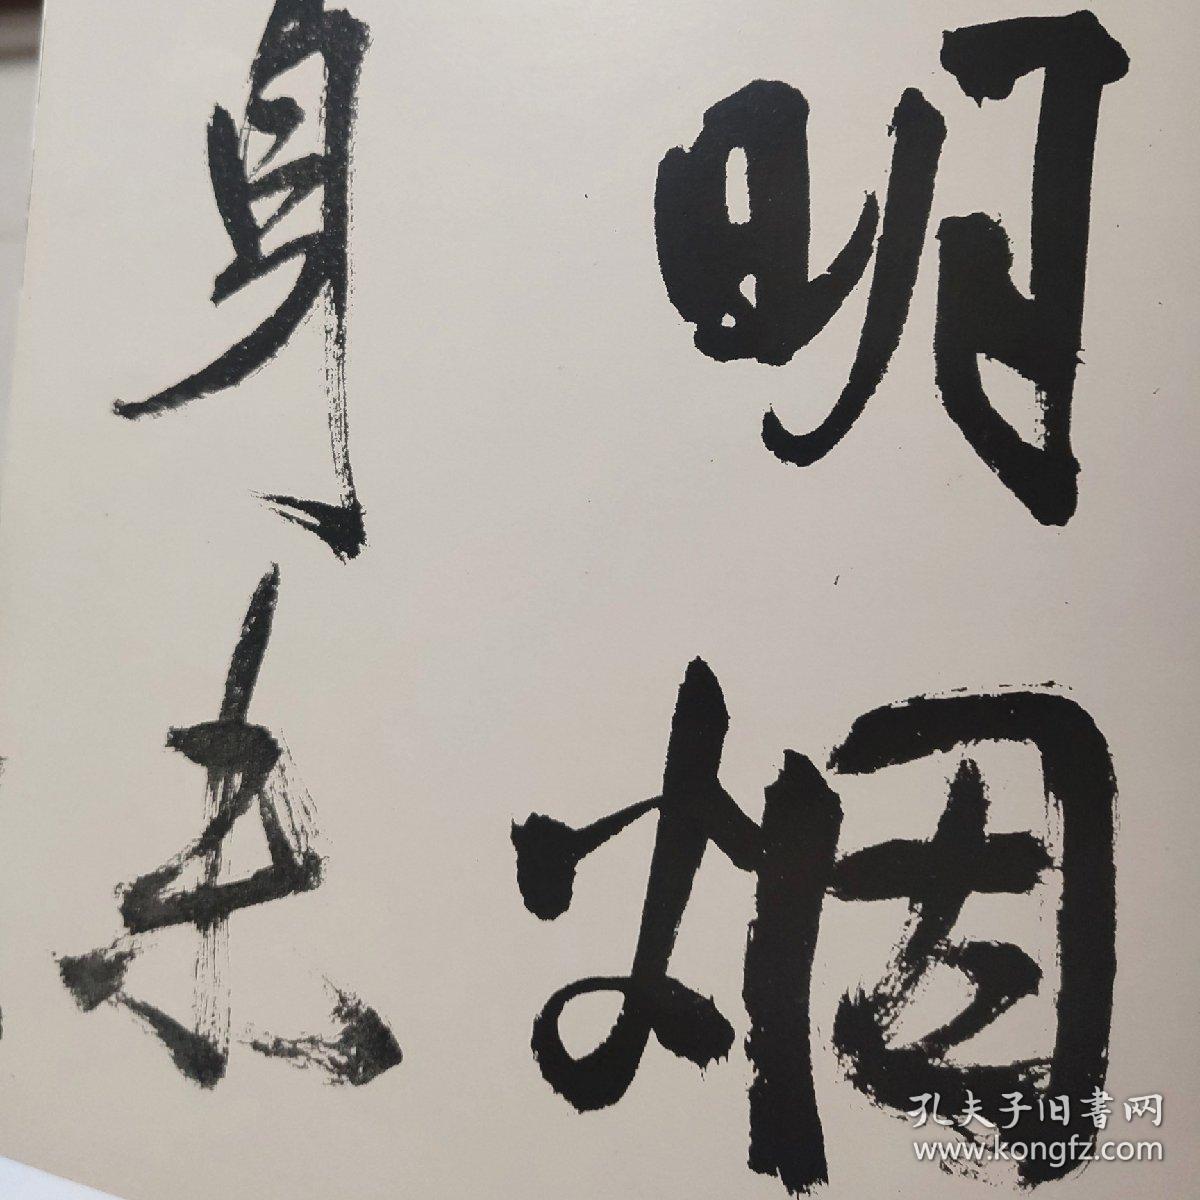 明烟
身未
孔夫子旧書网
www.kongfz.com